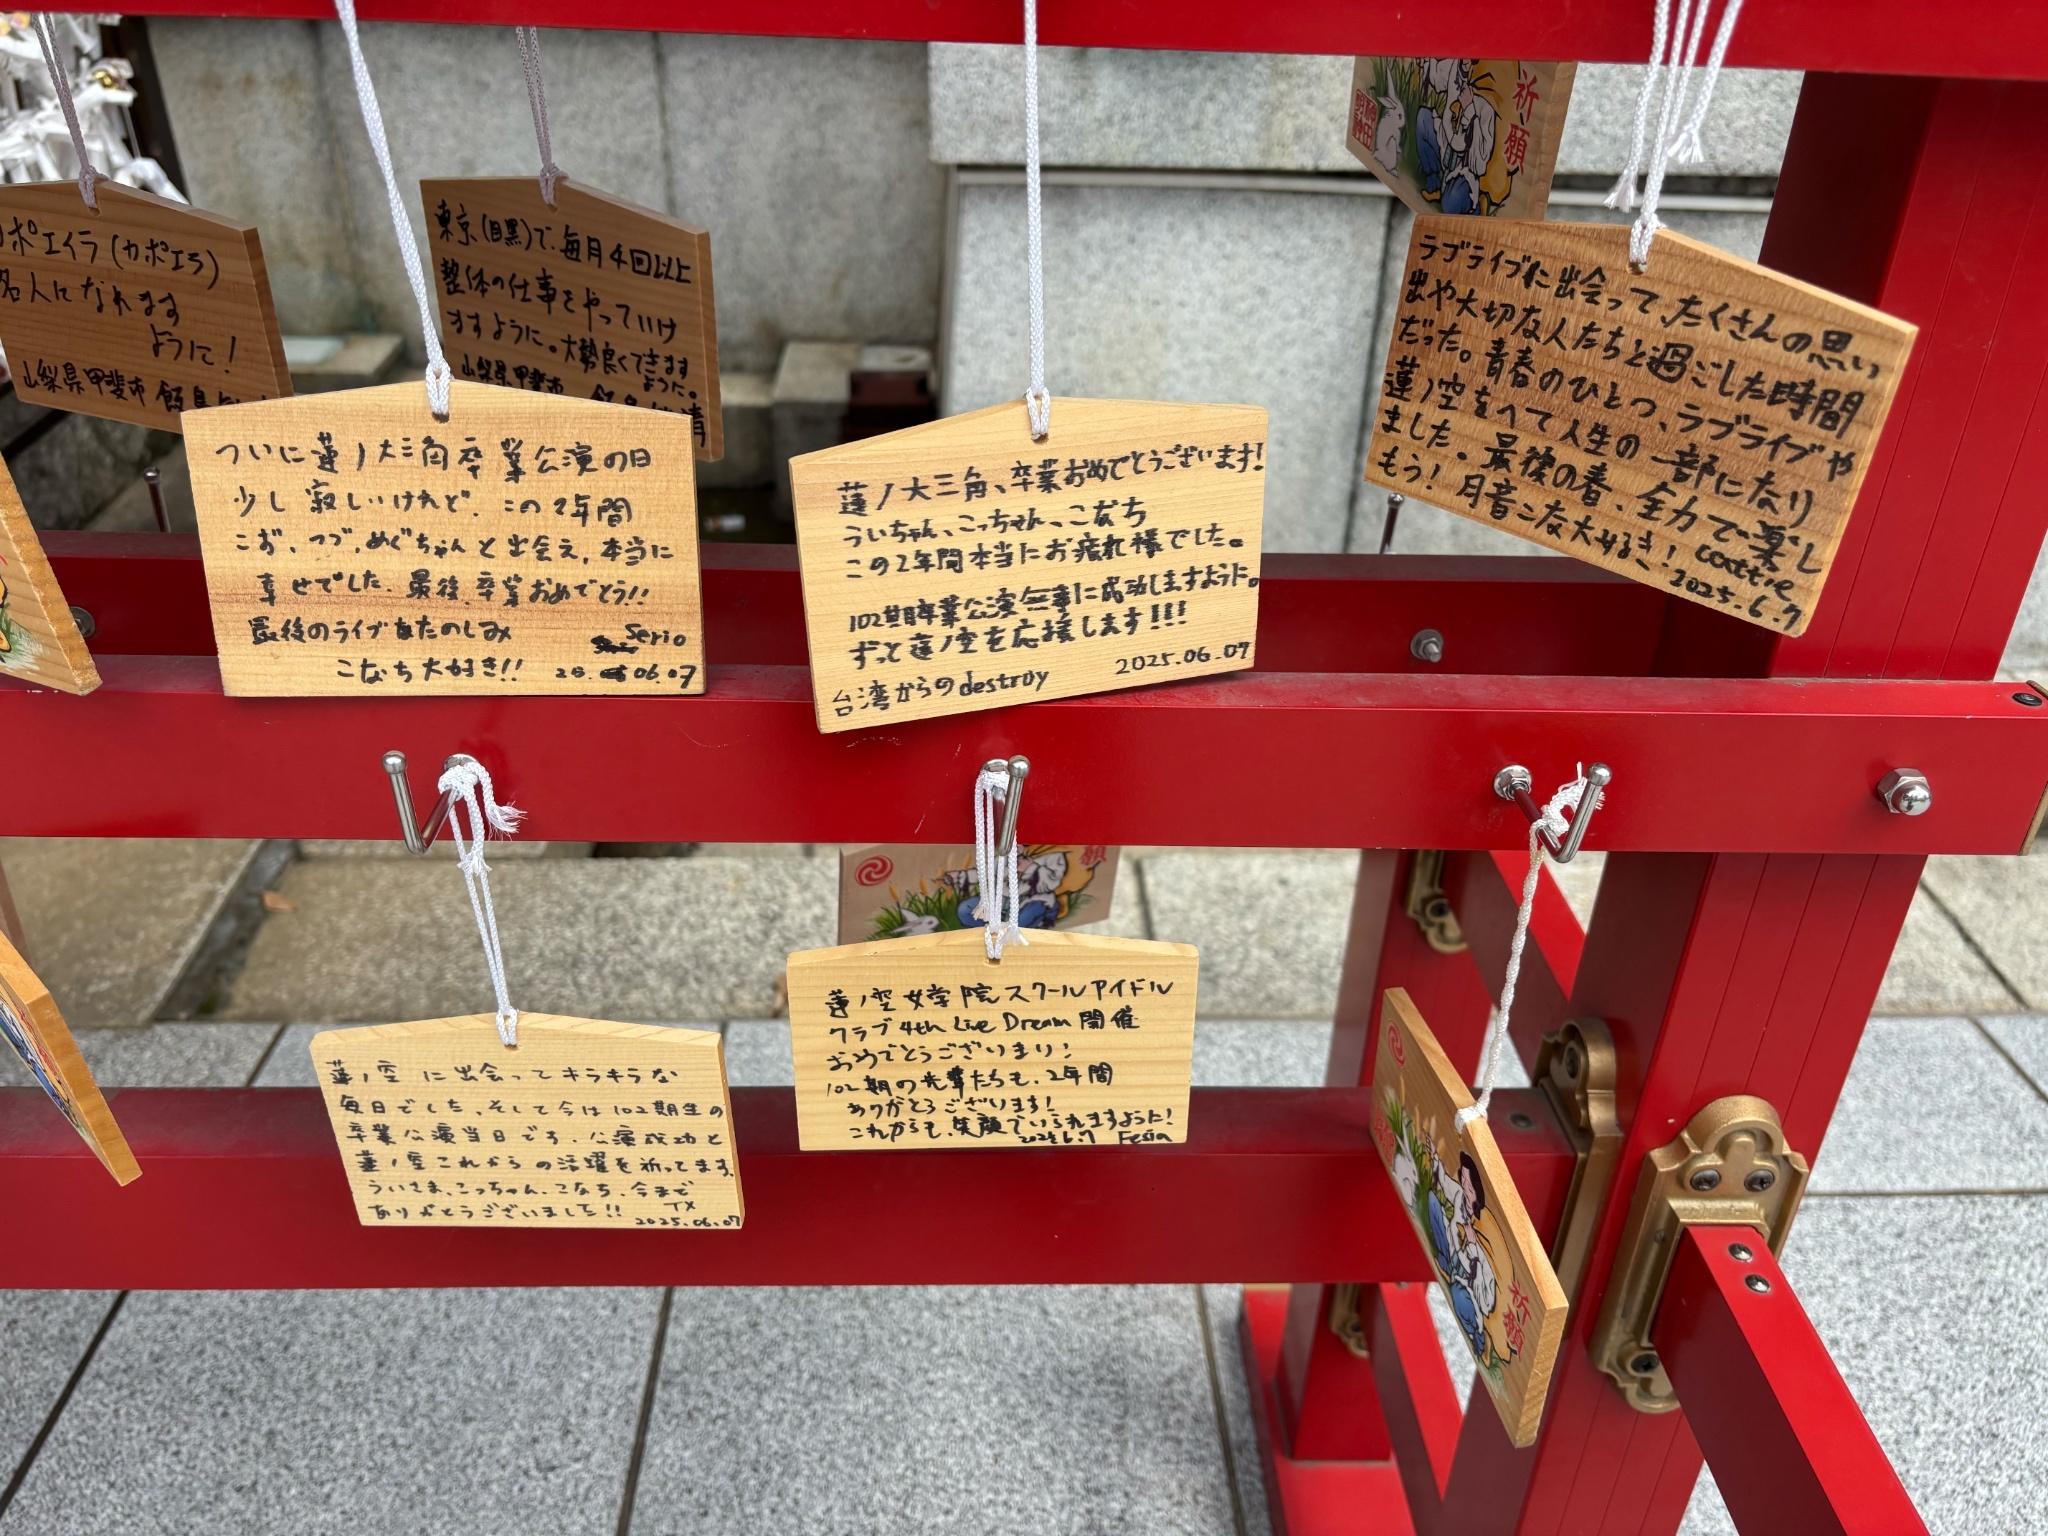 ポエイラ(カポエラ)
名人になれます
ように!
山梨県甲斐市 飯島
東京(目黒)で、毎月4回以上
整体の仕事をやっていけ
ますように。大勢良くできます
ように。
山梨県甲斐市
祈願
ラブライブに出会って、たくさんの思い
出や大切な人たちと過ごした時間
だった。青春のひとつ、ラブライブや
蓮ノ空をへて人生の一部になり
ました。最後の春、全力で楽し
もう! 月音こな大好き!
2025.6.7
ついに蓮ノ大三角卒業公演の日
少し寂しいけれど、この2年間
こず、つづ、めぐちゃんと出会え、本当に
幸せでした、最後、卒業おめでとう!!
最後のライブもたのしみ
Serio
こなち大好き!! 25. 06.07
蓮ノ大三角、卒業おめでとうございます!
ういちゃん、こっちゃん、こなち
この2年間本当にお疲れ様でした。
102期卒業公演無事に成功しますように。
ずっと蓮ノ空を応援します!!!
2025.06.07
台湾からのdestroy
願
蓮ノ空女学院スクールアイドル
クラブ4th Live Dream開催
おめでとうございます!
102期の先輩たちも、2年間
ありがとうございます!
これからも、笑顔でいられますように!
2025.6.7 Fesia
蓮ノ空に出会ってキラキラな
毎日でした、そして今は102期生の
卒業公演当日です、公演成功と
蓮ノ空これからの活躍を祈ってます。
ういさま、こっちゃん、こなち、今まで
ありがとうございました!! TX
2025.06.07
祈願